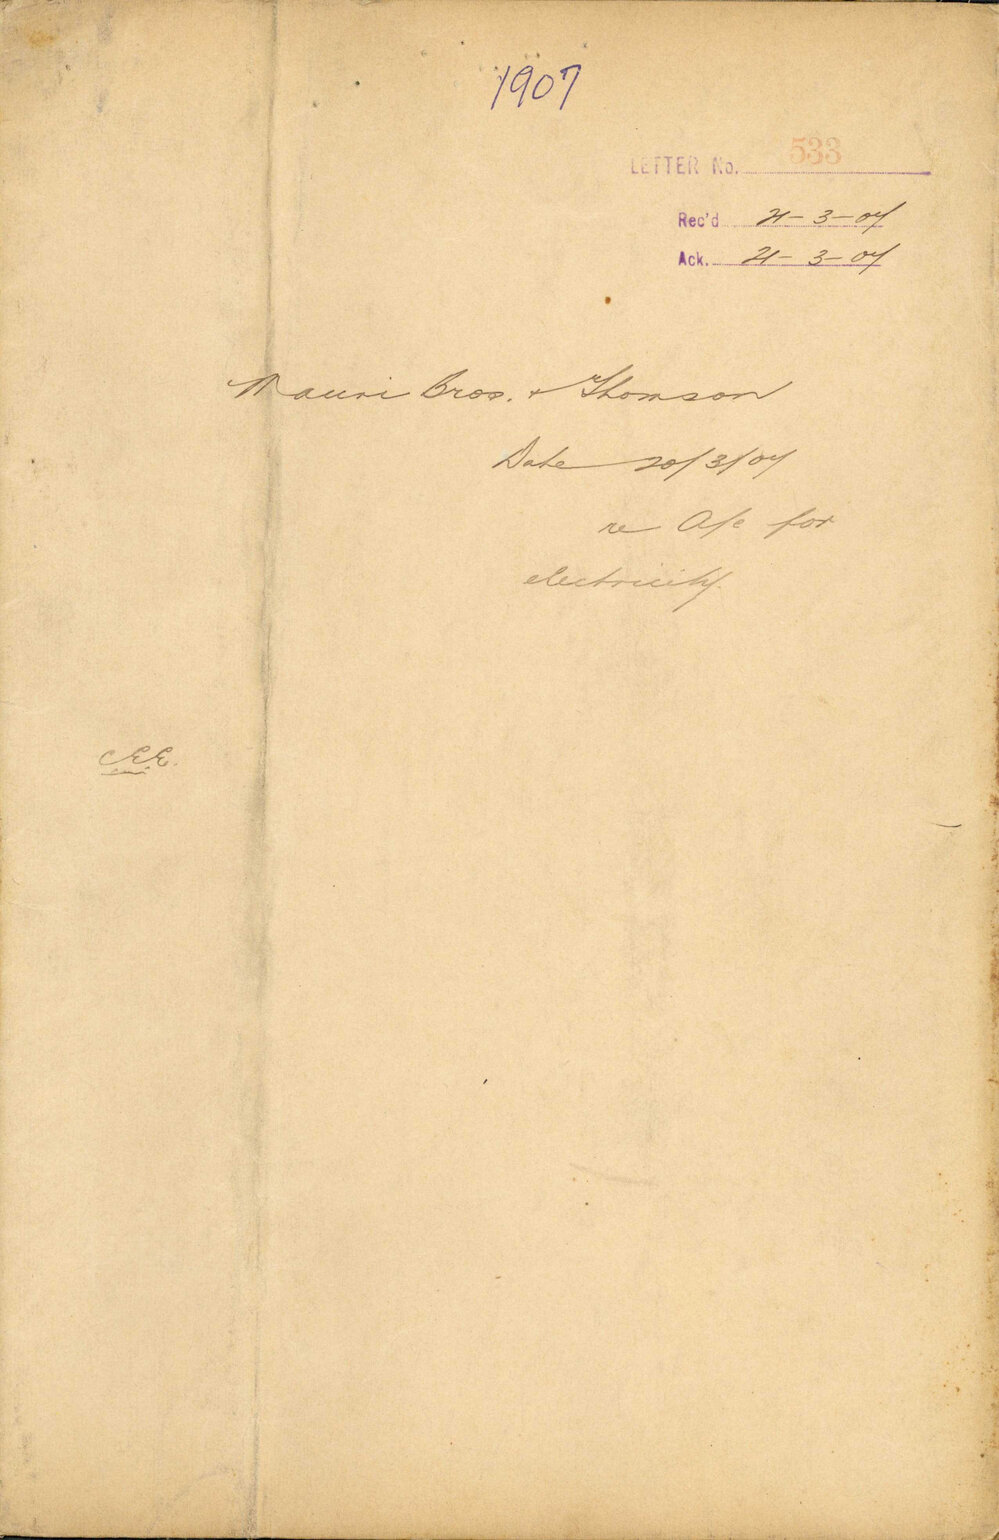 1907
LETTER No. 533
Rec'd 21-3-07
Ack. 21-3-07
Mauri Bros. + Thomson
Date 20/3/07
re A/c for
electricity.
C.E.E.